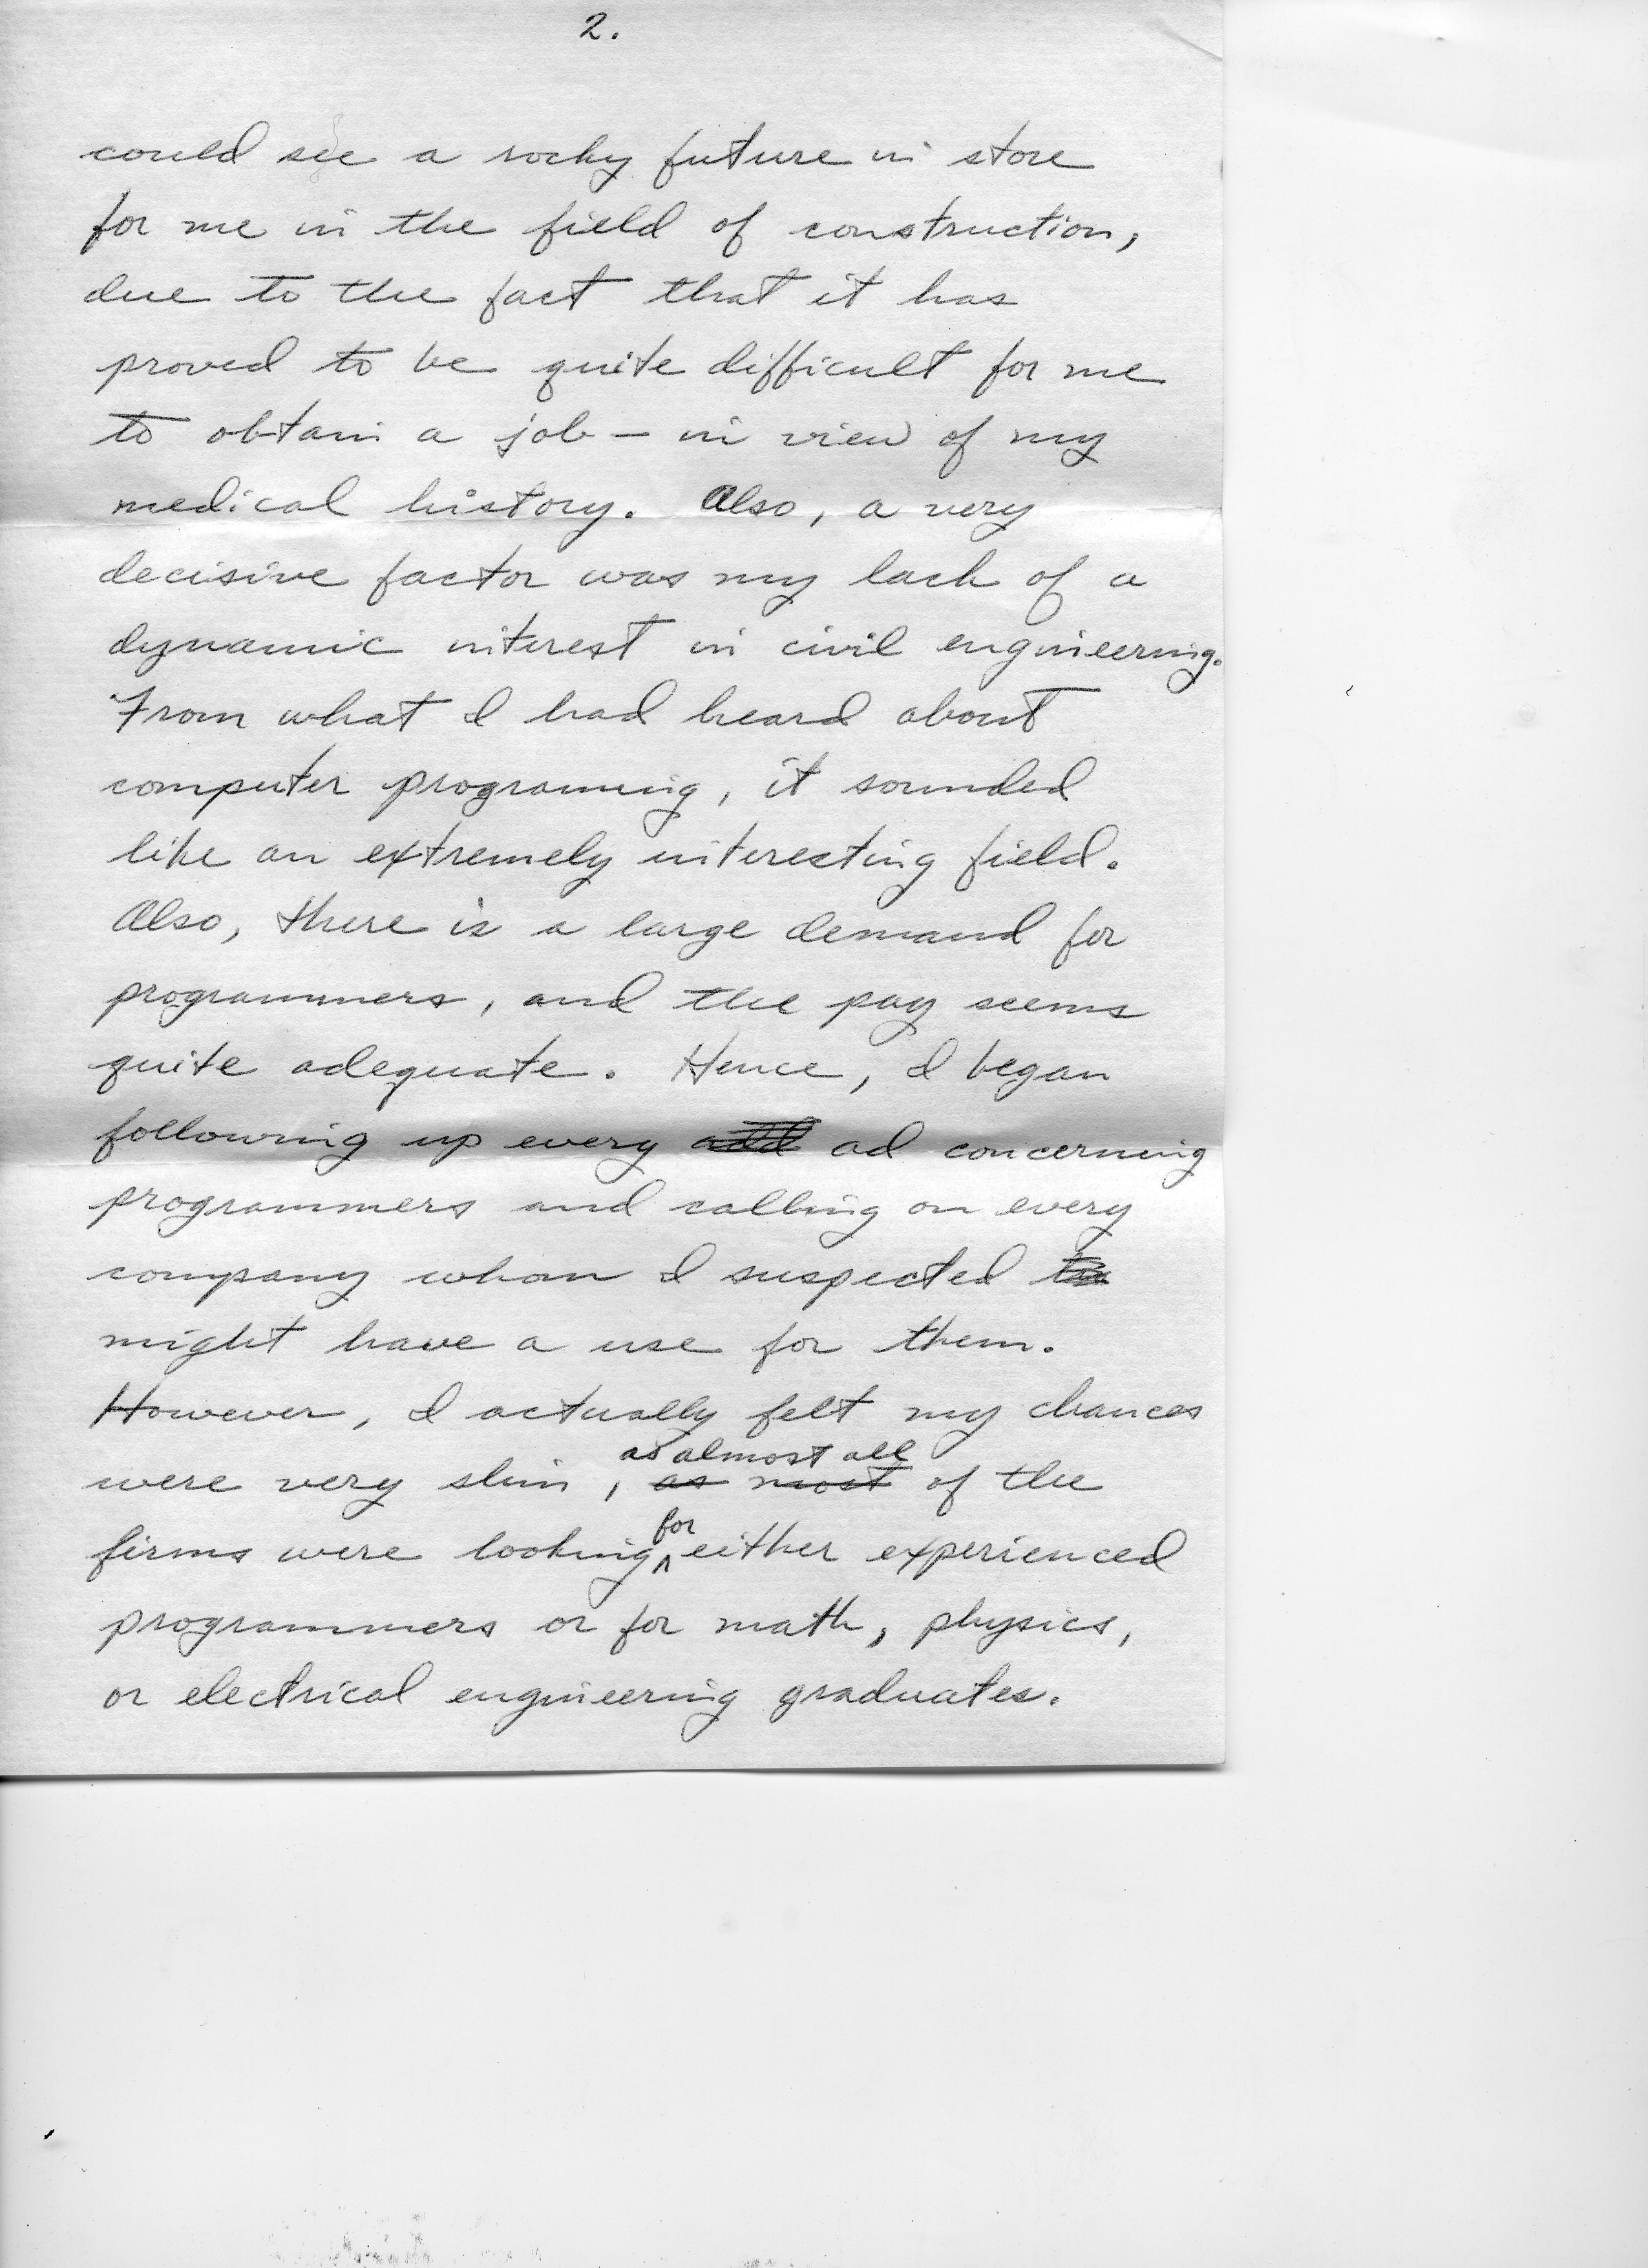 2.
could see a rocky future in store
for me in the field of construction,
due to the fact that it has
proved to be quite difficult for me
to obtain a job – in view of my
medical history. Also, a very
decisive factor was my lack of a
dynamic interest in civil engineering.
From what I had heard about
computer programing, it sounded
like an extremely interesting field.
Also, there is a large demand for
programmers, and the pay seems
quite adequate. Hence, I began
following up every add ad concerning
programmers and calling on every
company whom I suspected
might have a use for them.
However, I actually felt my chances
as almost all
were very slim, as most of the
for
firms were looking either experienced
programmers or for math, physics,
or electrical engineering graduates.